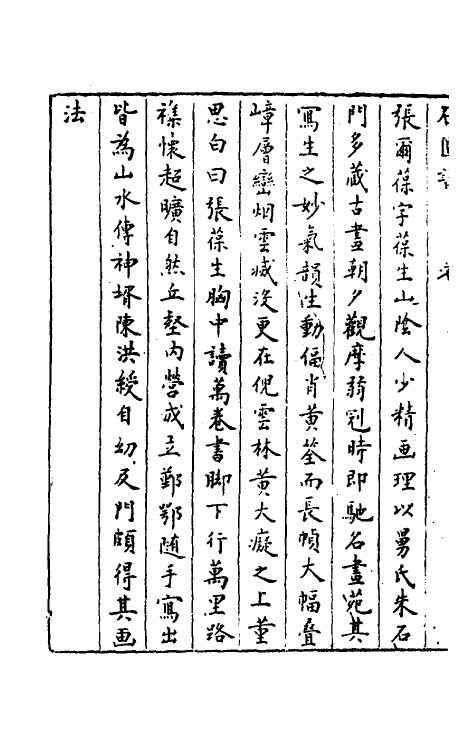 張爾葆字葆生山陰人少精画理以舅氏朱石
門多蔵古畫朝夕觀摩弱冠時即馳名畫苑其
寫生之妙氣韻生動偪肖黄荃而長幀大幅叠
嶂層巒烟雲滅没更在倪雲林黄大癡之上董
思白曰張葆生胸中讀萬卷書脚下行萬里路
襟懷超曠自然丘壑内營成立鄞鄂随手寫出
皆為山水傳神壻陳洪綬自幼及門頗得其画
法